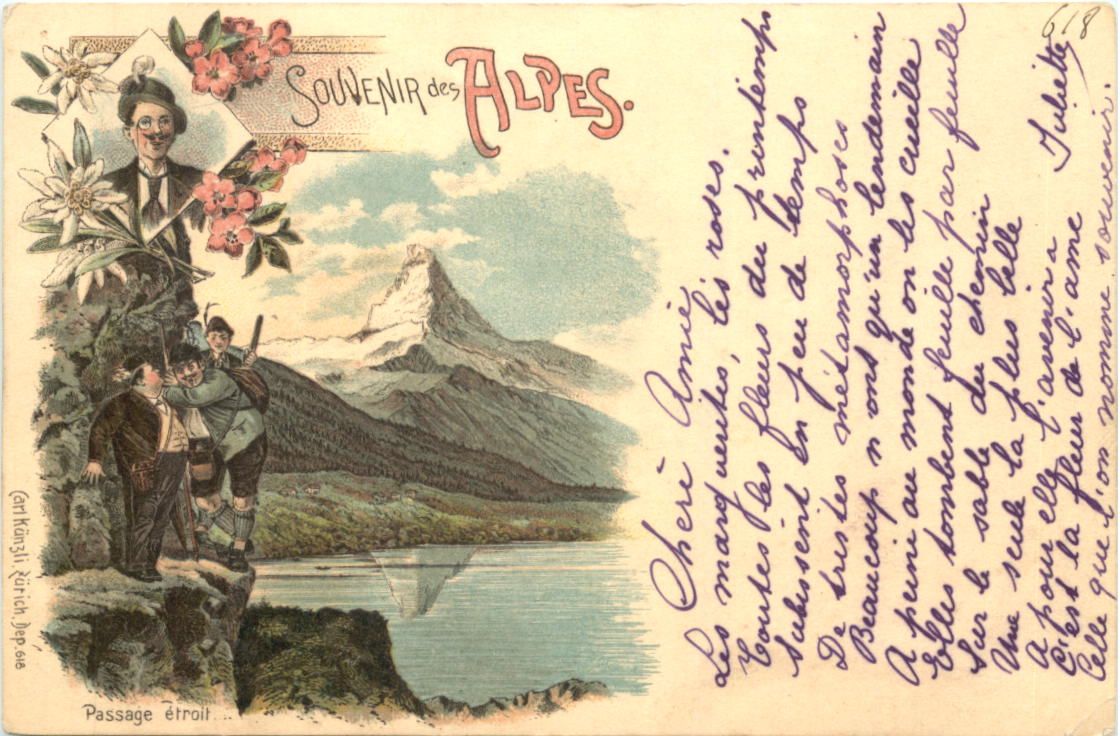 SOUVENIR des ALPES.
618
Carl Künzli, Zürich. Dep. 618
Passage étroit...
Cheri Amie
Les marguerites, les roses.
Toutes les fleurs du printemps
Subissent en peu de temps
De tristes métamorphoses
Beaucoup n'ont qu'un lendemain
A peine au monde on les cueille
Elles tombent feuille par feuille
Sur le sable du chemin
Une seule la plus belle
A pour elle l'avenir a
C'est la fleur de l'ame Juliette
Celle que l'on nomme souvenir.